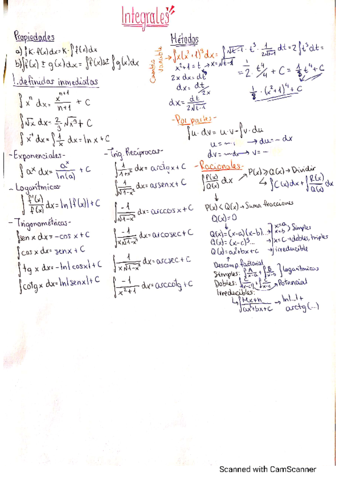 Integrales
Propiedades
a) ∫K·f(x)dx = K·∫f(x)dx
b) ∫f(x) ± g(x)dx = ∫f(x)dx ± ∫g(x)dx
I. definidas inmediatas
∫xⁿ dx = xⁿ⁺¹/(n+1) + C
∫√x dx = 2/3 √x³ + C
∫x⁻¹ dx = ∫1/x dx = ln x + C
-Exponenciales-
∫aˣ dx = aˣ/ln(a) + C
-Logarítmicas
∫f'(x)/f(x) dx = ln|f(x)| + C
-Trigonométricas-
∫sen x dx = -cos x + C
∫cos x dx = sen x + C
∫tg x dx = -ln|cos x| + C
∫cotg x dx = ln|sen x| + C
-Trig. Recíprocas-
∫1/(1+x²) dx = arctg x + C
∫1/√(1-x²) dx = arcsen x + C
∫-1/√(1-x²) dx = arccos x + C
dx = arccosec x + C
dx = arcsec x + C
∫-1/(x²+1) dx = arccotg x + C
Métodos
Cambio variable
∫x(x²+1)³ dx
x²+1 = t → x = √t-1
2x dx = dt
dx = dt/2x
dx = dt/2√t-1
1/2 · t⁴/4 + C = 1/8 t⁴ + C
1/8 · (x²+1)⁴ + C
-Por partes-
∫u·dv = u·v - ∫v·du
u = → du = - dx
dv = → v = -
-Racionales-
∫P(x)/Q(x) dx
P(x) ≥ Q(x) → Dividir
∫C(x)dx + ∫R(x)/Q(x) dx
P(x) < Q(x) → Suma fracciones
Q(x) = 0
Q(x) = (x-a)(x-b)... → x=a, x=b Simples
Q(x) = (x-c)²... → x=c → dobles, triples
Q(x) = ax²+bx+c → irreducible
Descomp. factorial
Simples: logarítmicas
Dobles: Potencial
Irreducibles:
∫Mx+n/ax²+bx+c → ln|...| + arctg(...)
Scanned with CamScanner